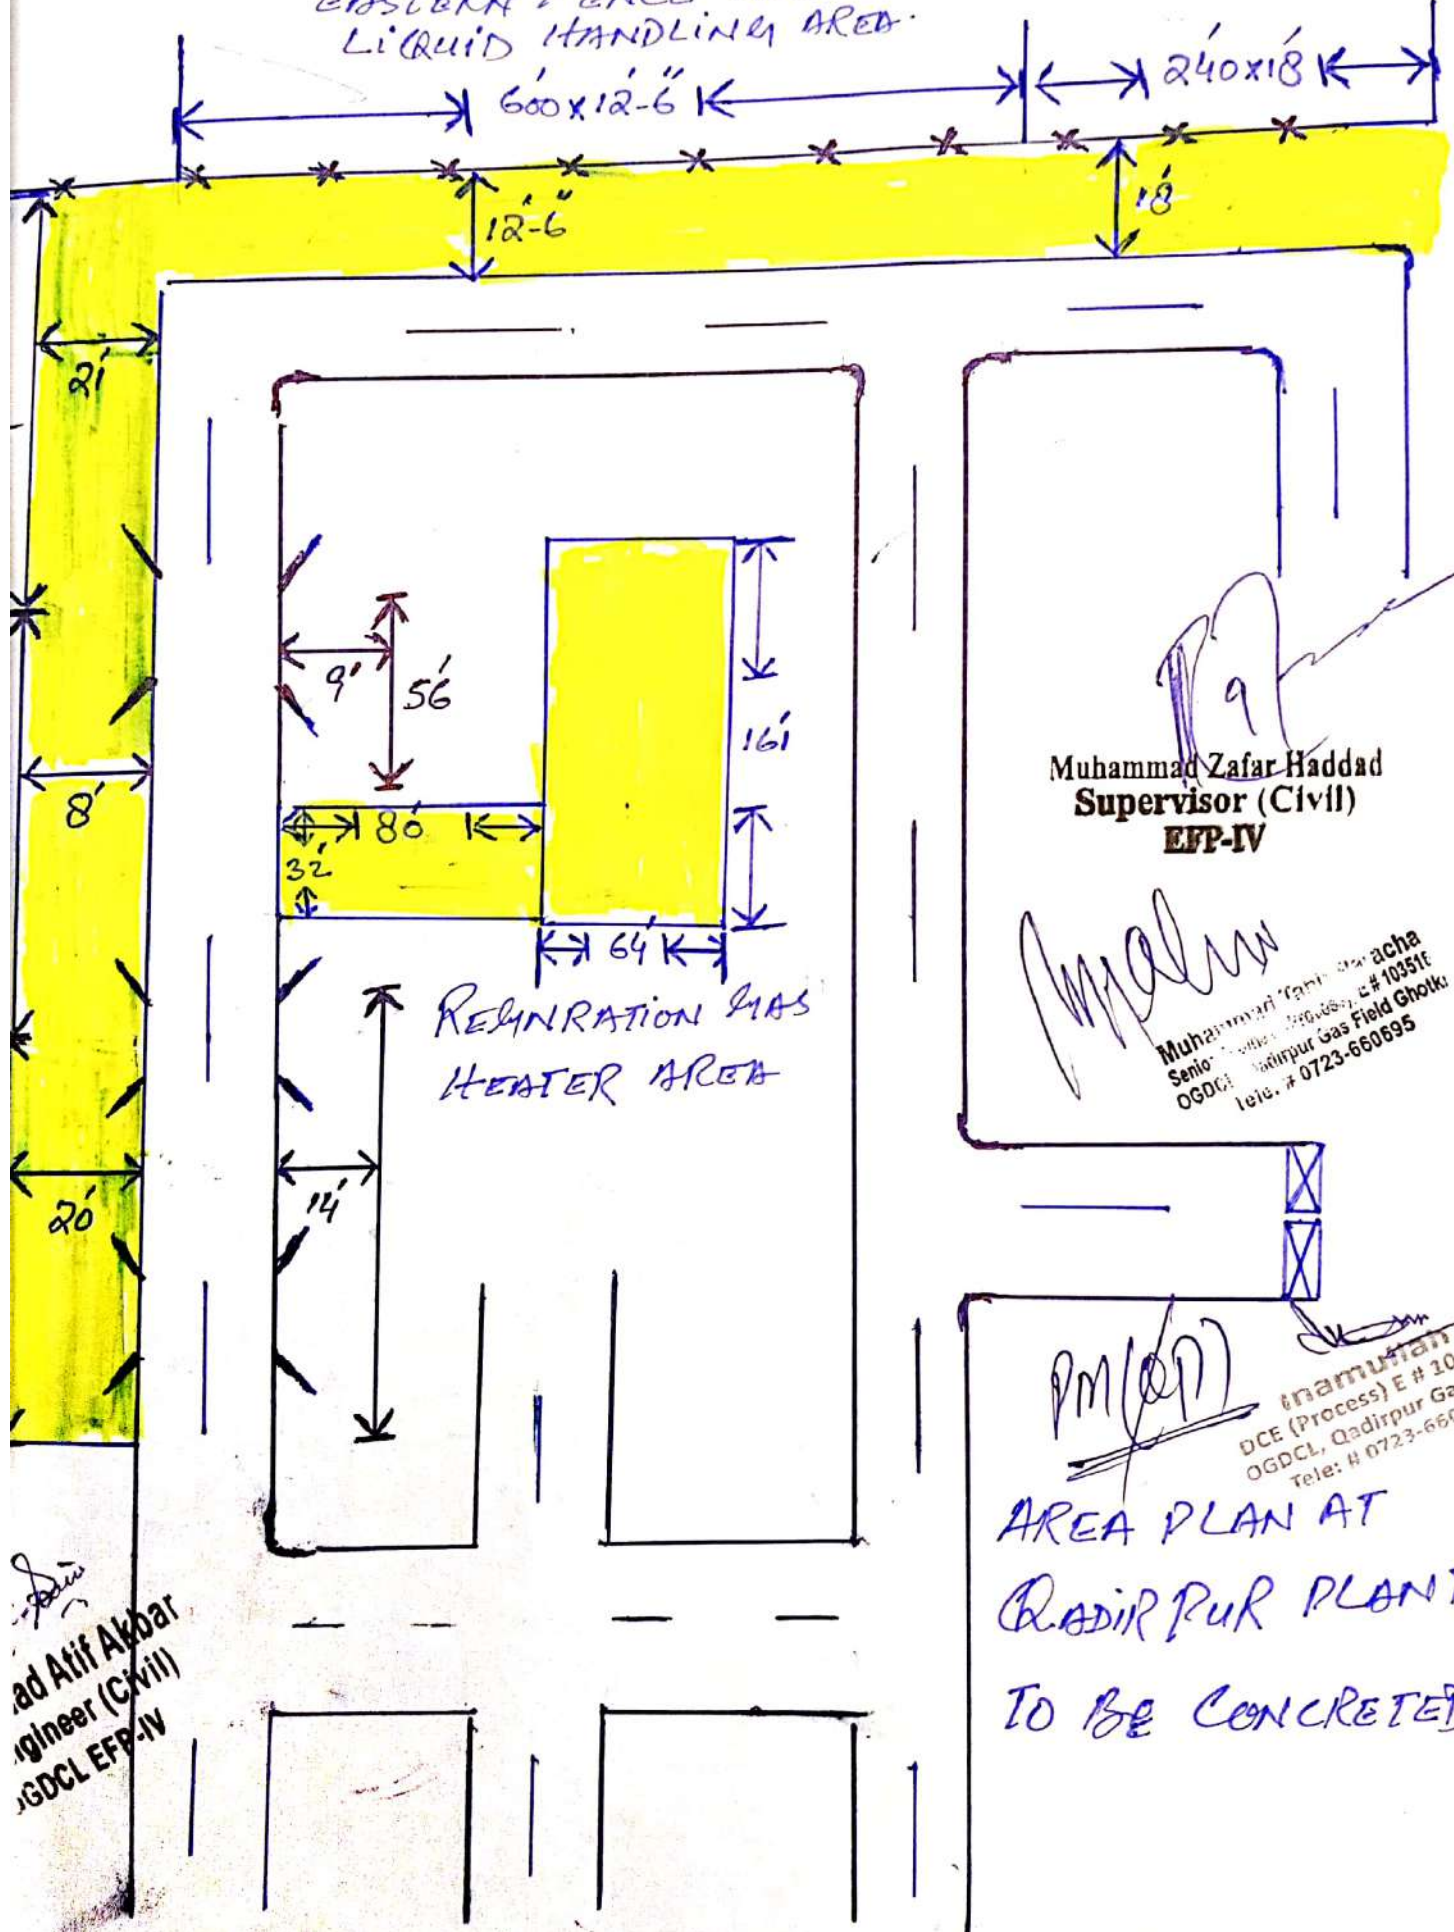 LIQUID HANDLING AREA.
600'x12'-6"
240'x18'
12'-6"
18'
21'
9'
56'
161'
8'
80'
32'
64'
REGNRATION GAS
HEATER AREA
20'
14'
Muhammad Zafar Haddad
Supervisor (Civil)
EFP-IV
Muhammad
Qadirpur Gas Field Ghotki
OGDCL
Tele. # 0723-660695
PM(QP)
Inamullah
DCE (Process) E # 10
OGDCL, Qadirpur Ga
Tele: # 0723-66
AREA PLAN AT
QADIR PUR PLANT
TO BE CONCRETED
ad Atif Akbar
gineer (Civil)
OGDCL EFP-IV